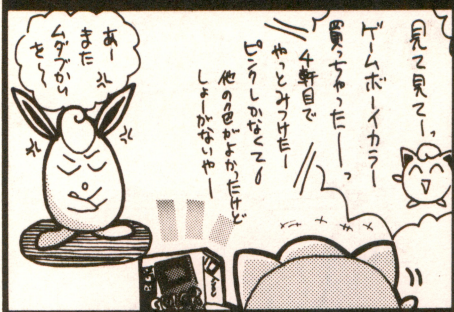 見て見てーっ
ゲームボーイカラー
買っちゃったーーっ
4軒目で
やっとみつけたー
ピンクしかなくてゥ
他の色がよかったけど
しょーがないやー
あー
また
ムダづかい
を〜